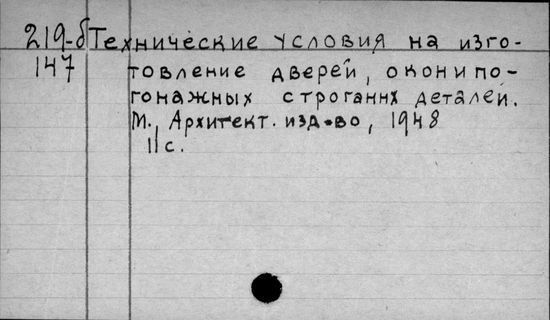 219-б Технические условия на изго-
147 товление дверей, окон и по-
гонажных строганнх деталей.
М., Архитект. изд-во, 1948
11 с.